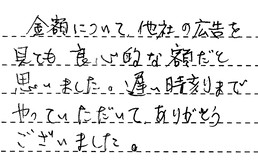 金額について、他社の広告を
見ても良心的な額だと
思いました。遅い時刻まで
やっていただいてありがとう
ございました。